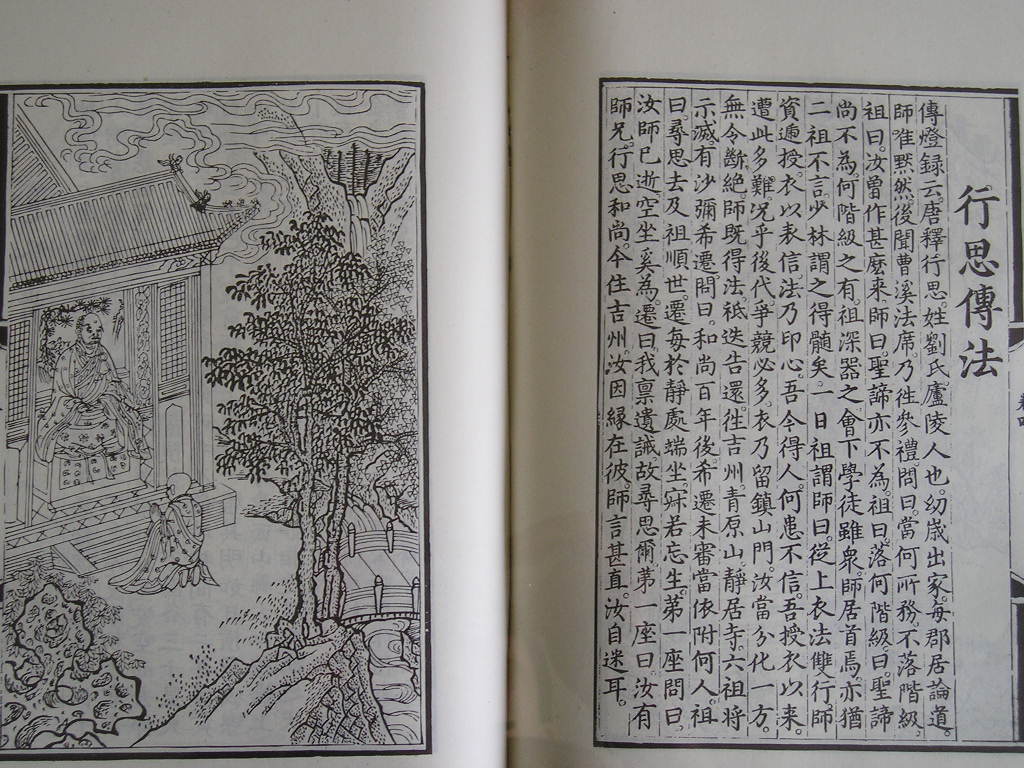 行思傳法
傳燈録云。唐釋行思。姓劉氏。廬陵人也。幼歲出家。每郡居論道。
師惟默然。後聞曹溪法席。乃徃參禮。問曰。當何所務。不落階級。
祖曰。汝曾作甚麽來。師曰。聖諦亦不為。祖曰。落何階級。曰。聖諦
尚不為。何階級之有。祖深器之。會下學徒雖衆。師居首焉。亦猶
二祖不言。少林謂之得髓矣。一日祖謂師曰。從上衣法雙行。師
資遞授。衣以表信。法乃印心。吾今得人。何患不信。吾授衣以來。
遭此多難。況乎後代。爭競必多。衣乃留鎮山門。汝當分化一方。
無令斷絶。師既得法。祇迭告還。徃吉州。青原山。靜居寺。六祖將
示滅。有沙彌希遷問曰。和尚百年後。希遷未審當依附何人。祖
曰。尋思去。及祖順世。遷每於靜處端坐。寂若忘生。第一座問曰。
汝師已逝。空坐奚為。遷曰。我禀遺誡。故尋思爾。第一座曰。汝有
師兄。行思和尚。今住吉州。汝因緣在彼。師言甚直。汝自迷耳。